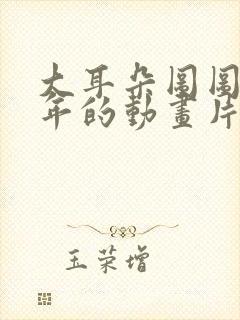 大耳朵圖圖
年的動畫片
玉荣增